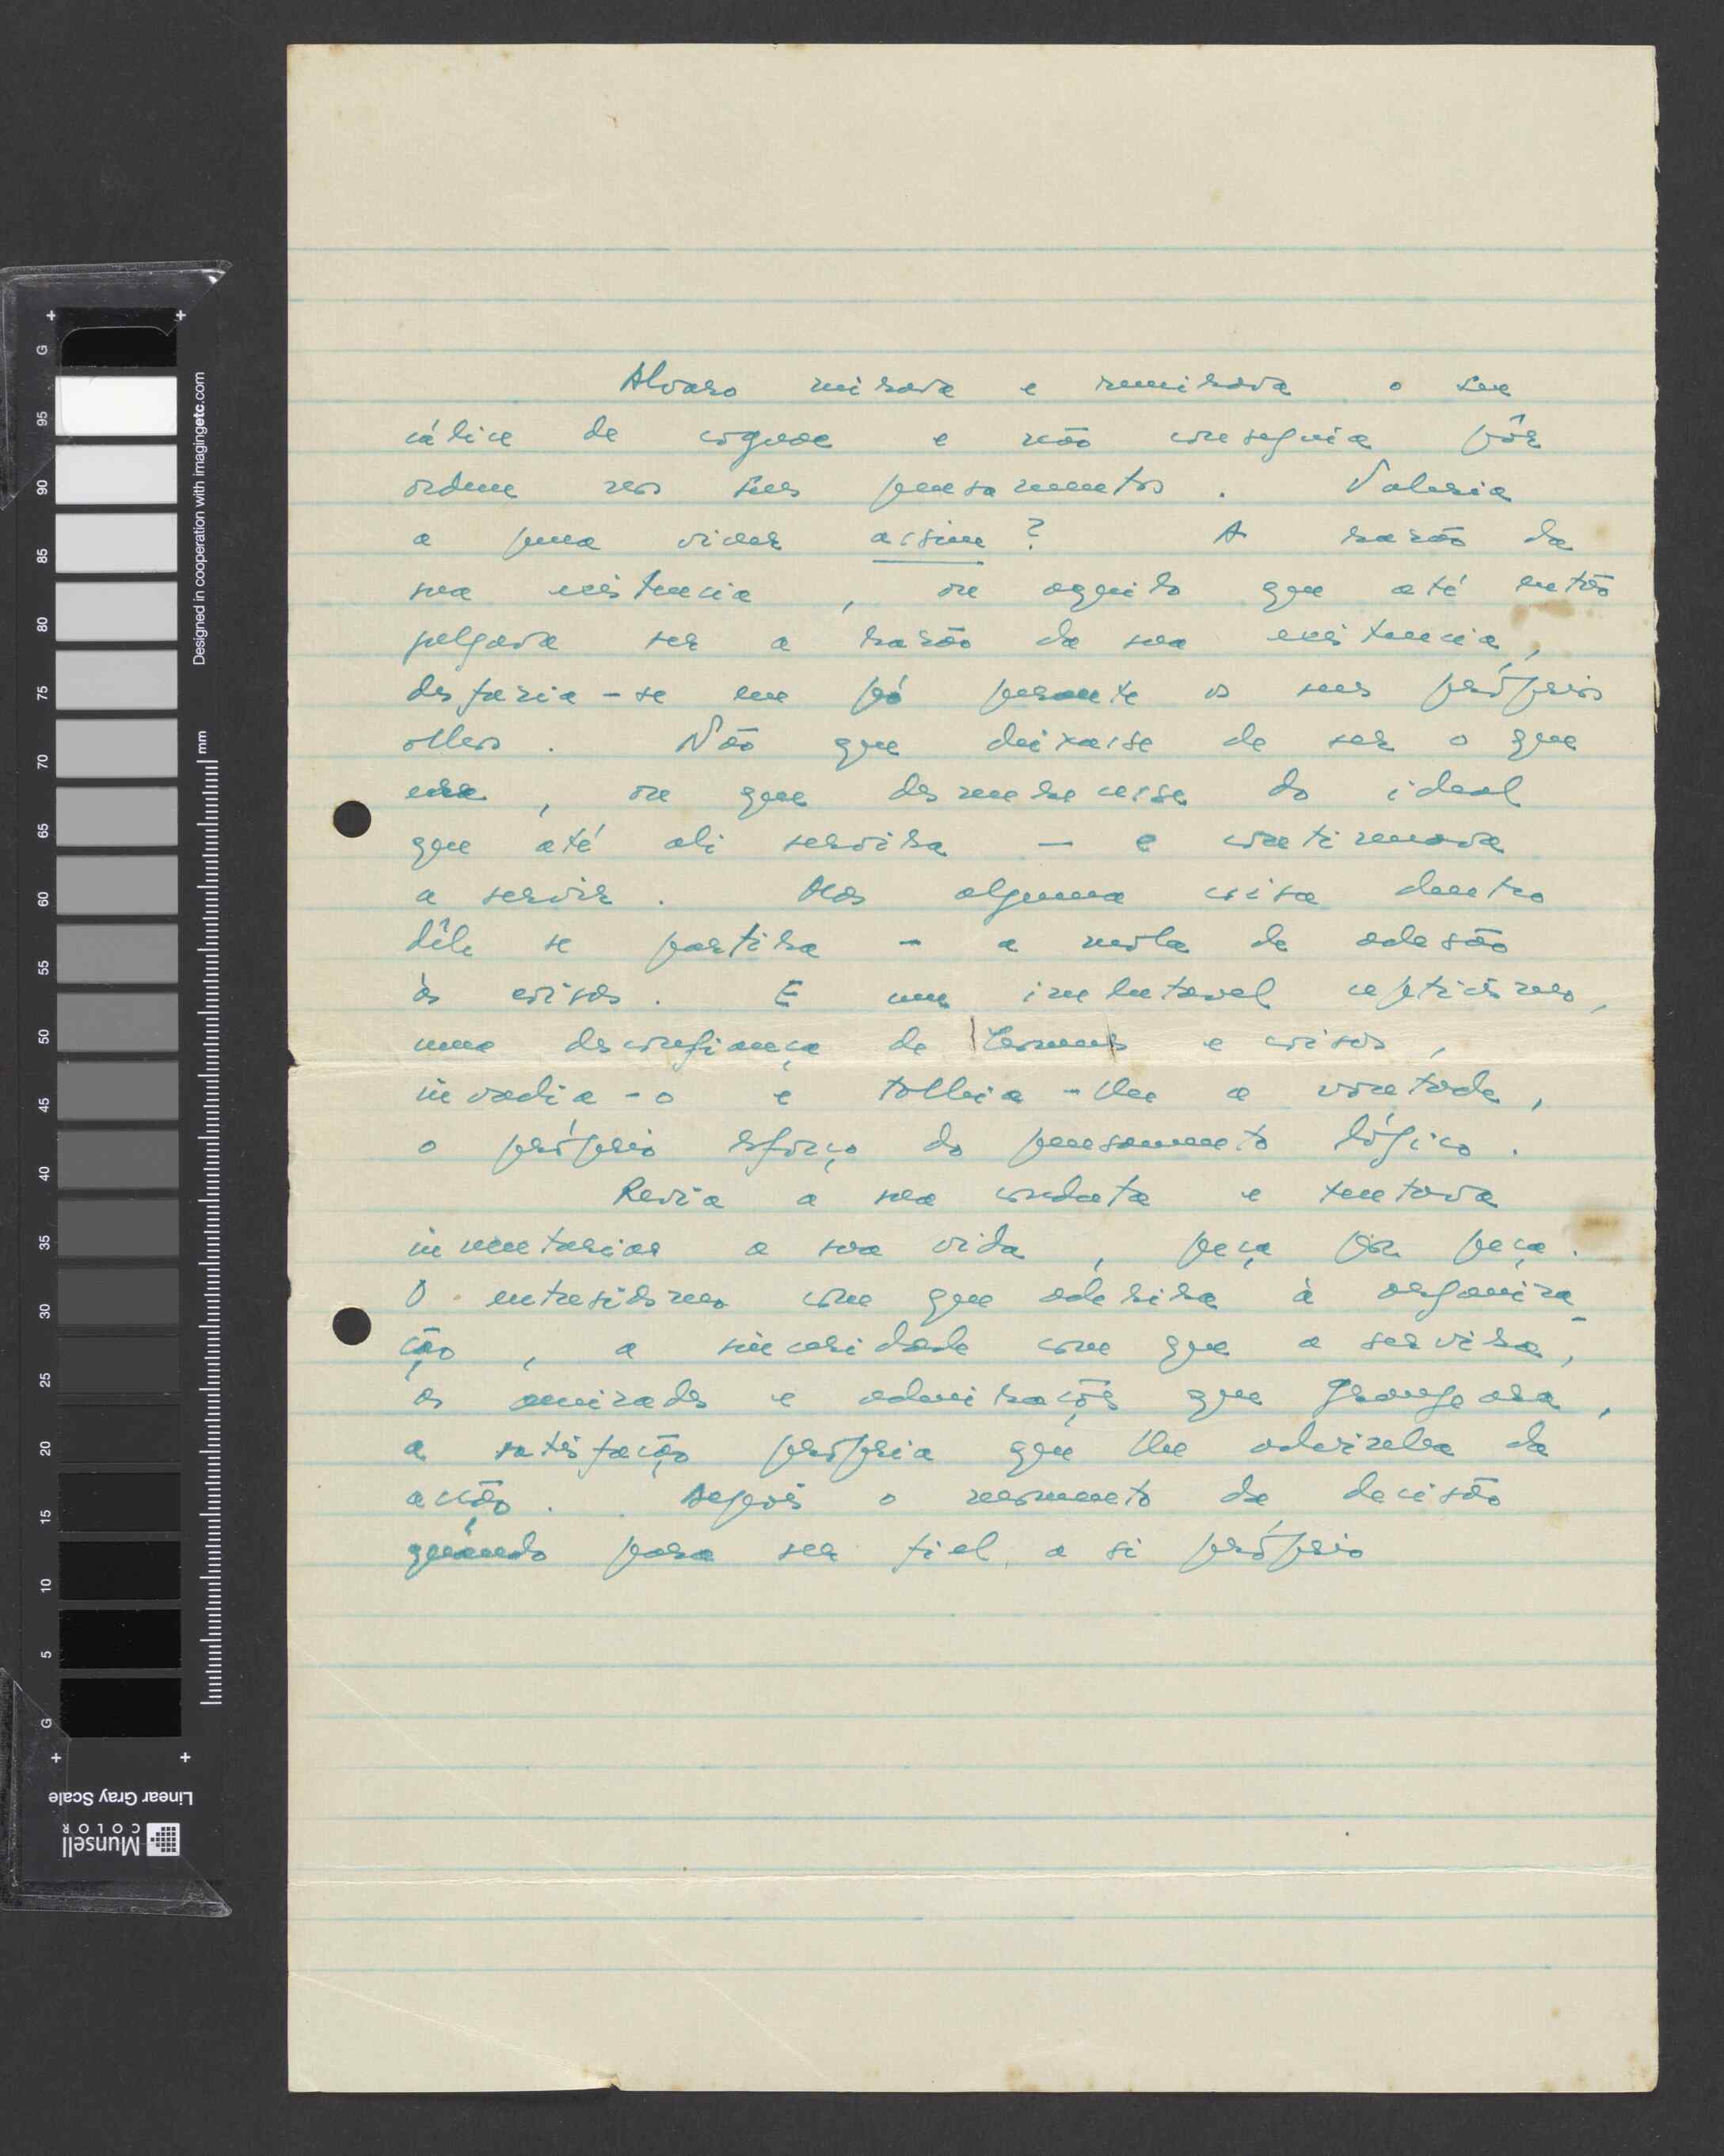 Alvaro mirava e remirava o seu
cálice de cognac e não conseguia pôr
ordem nos seus pensamentos. Valeria
a pena viver assim? A razão da
sua existencia, ou aquilo que até então
julgava ser a razão da sua existencia,
desfazia-se em pó perante os seus próprios
olhos. Não que deixasse de ser o que
era, ou que desmerecesse do ideal
que até ali servira — e continuava
a servir. Mas alguma coisa dentro
dêle se partira - a mola de adesão
às coisas. E um inelutavel cepticismo,
uma desconfiança de homens e coisas,
invadia-o e tolhia-lhe a vontade,
o próprio esforço do pensamento lógico.
Revia a sua conduta e tentava
inventariar a sua vida, peça por peça.
O entresidsmo com que aderira à organiza-
ção, a sinceridade com que a servira,
as amizades e admirações que grangeara,
a satisfação própria que lhe advinha da
acção. Depois o momento da decisão
quando para ser fiel a si próprio
G 95 90 85 80 75 70 65 60 55 50 45 40 35 30 25 20 15 10 5 G
Designed in cooperation with imagingetc.com
mm
Linear Gray Scale
Munsell
COLOR